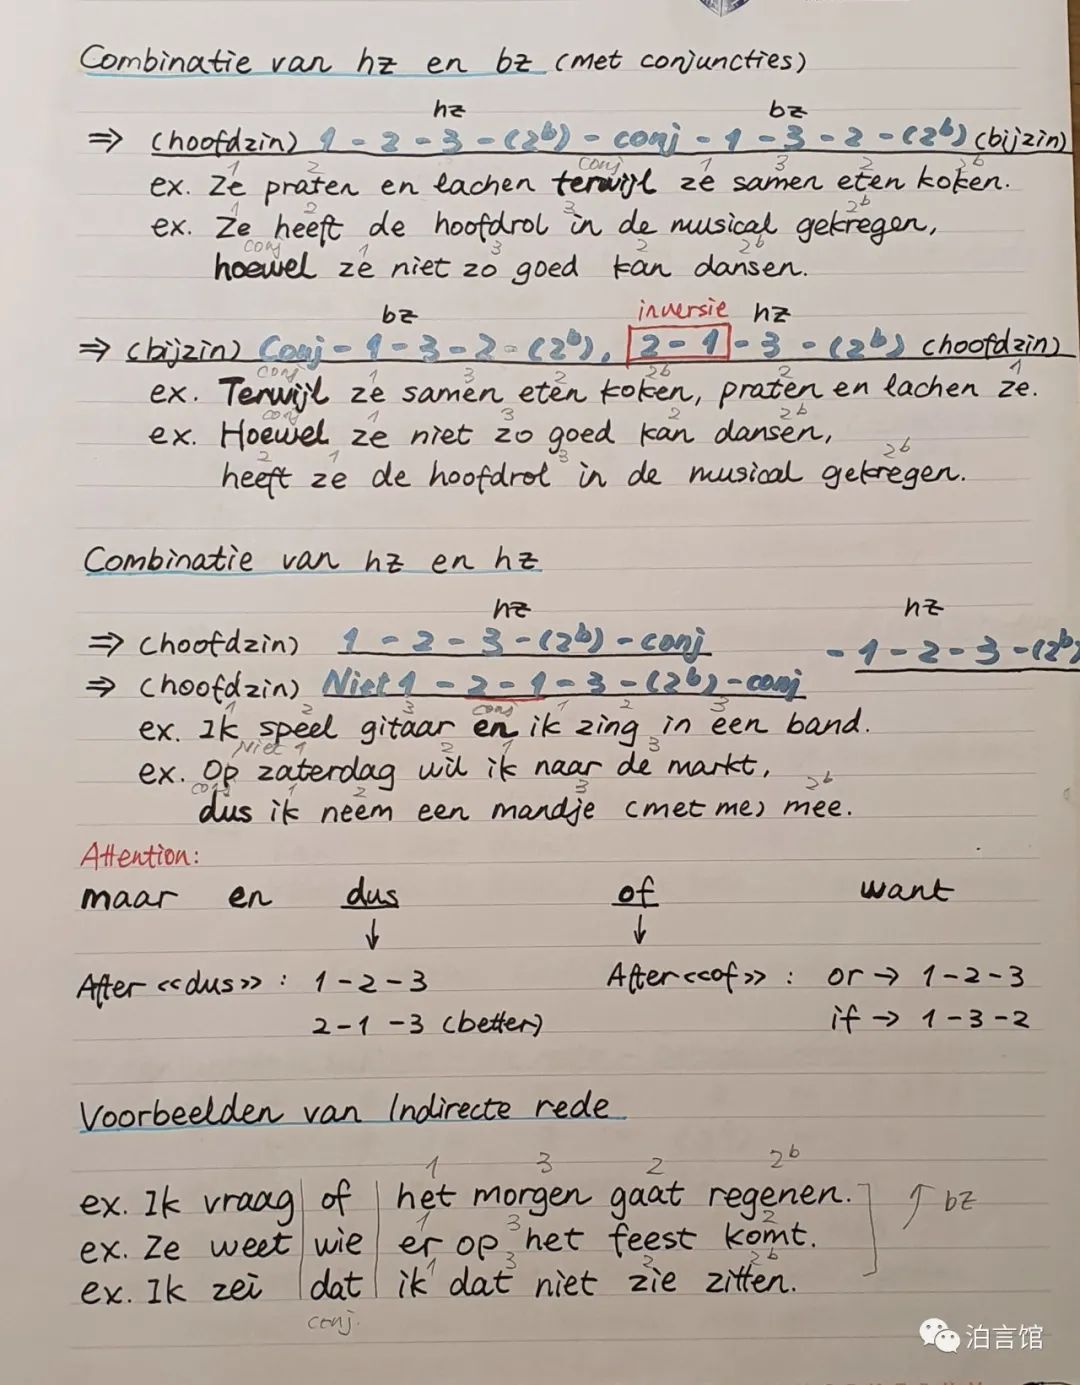 Combinatie van hz en bz (met conjuncties)
hz bz
⇒ (hoofdzin) 1 - 2 - 3 - (2ᵇ) - conj - 1 - 3 - 2 - (2ᵇ) (bijzin)
1 2 conj 1 3 2 2b
ex. Ze praten en lachen terwijl ze samen eten koken.
1 2 3 2b
ex. Ze heeft de hoofdrol in de musical gekregen,
conj 1 3 2 2b
hoewel ze niet zo goed kan dansen.
bz inversie hz
⇒ (bijzin) Conj - 1 - 3 - 2 - (2ᵇ), 2 - 1 - 3 - (2ᵇ) (hoofdzin)
conj 1 3 2 2b 2 1
ex. Terwijl ze samen eten koken, praten en lachen ze.
conj 1 3 2 2b
ex. Hoewel ze niet zo goed kan dansen,
2 1 3 2b
heeft ze de hoofdrol in de musical gekregen.
Combinatie van hz en hz
hz hz
⇒ (hoofdzin) 1 - 2 - 3 - (2ᵇ) - conj - 1 - 2 - 3 - (2ᵇ)
⇒ (hoofdzin) Niet 1 - 2 - 1 - 3 - (2ᵇ) - conj
1 2 3 conj 1 2 3
ex. Ik speel gitaar en ik zing in een band.
Niet 1 2 1 3
ex. Op zaterdag wil ik naar de markt,
conj 1 2 3 2b
dus ik neem een mandje (met me) mee.
Attention:
maar en dus of want
↓ ↓
After <<dus>> : 1 - 2 - 3 After <<of>> : or → 1 - 2 - 3
2 - 1 - 3 (better) if → 1 - 3 - 2
Voorbeelden van Indirecte rede
1 3 2 2b
ex. Ik vraag | of | het morgen gaat regenen.
1 3 2
ex. Ze weet | wie | er op het feest komt. ↑ bz
1 3 2 2b
ex. Ik zei | dat | ik dat niet zie zitten.
conj.
泊言馆